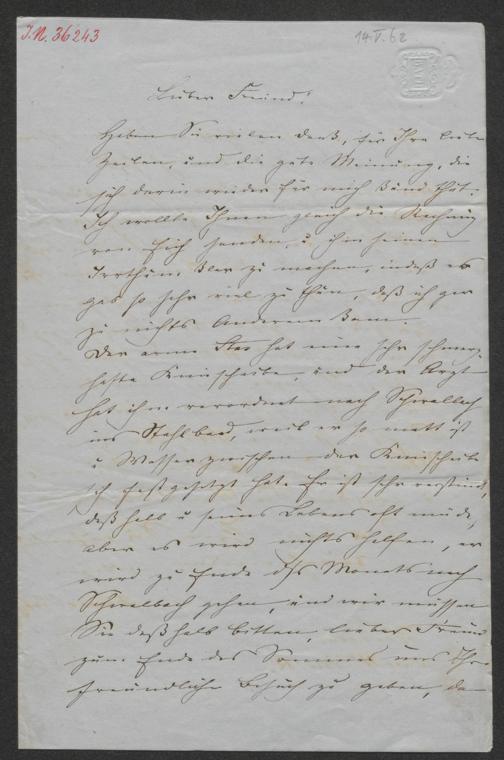 J.N. 36243
14.V.62
Lieber Freund!
Haben Sie vielen Dank, für Ihre lieben
Zeilen, und die gute Meinung, die
sich darin wieder für mich kund thut.
Ich wollte Ihnen gleich die Rechnung
von senden, u. ihm seinen
Irrthum klar zu machen, indeß es
gab so sehr viel zu thun, daß ich gar
zu nichts Anderem kam.
Der arme hat eine sehr schmerz-
hafte Kniescheibe, und der Arzt
hat ihm verordnet nach Schwalbach
ins Stahlbad, weil er so matt ist
u Wasser zwischen der Kniescheibe
sich festgesetzt hat. Er ist sehr
deßhalb u seines Lebens oft müde,
aber es wird nichts helfen, er
wird zu Ende des Monats nach
Schwalbach gehen, und wir müssen
Sie deßhalb bitten, lieber Freund
zum Ende des Sommers uns Ihren
freundlichen Besuch zu geben, da